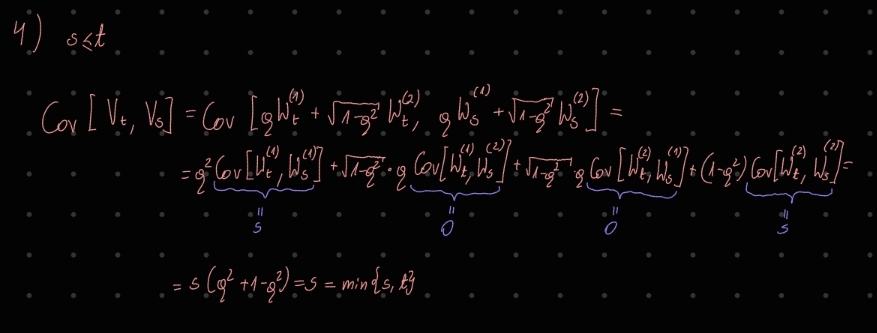 4) s≤t
Cov [V_t, V_s] = Cov [ϱW_t^(1) + √(1-ϱ²) W_t^(2), ϱW_s^(1) + √(1-ϱ²) W_s^(2)] =
= ϱ² Cov[W_t^(1), W_s^(1)] + √(1-ϱ²) · ϱ Cov[W_t^(1), W_s^(2)] + √(1-ϱ²) ϱ Cov[W_t^(2), W_s^(1)] + (1-ϱ²) Cov[W_t^(2), W_s^(2)] =
= = = =
s 0 0 s
= s (ϱ² + 1-ϱ²) = s = min{s, t}